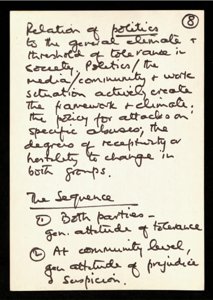 Relation of politics
⑧
to the general climate +
threshold of tolerance in
society. Politics / the
media/community + work
situation actively create
the framework + climate.
the policy for attacks on
specific abuses, the
degrees of receptivity or
hostility to change in
both groups.
The Sequence
① Both parties –
gen. attitude of tolerance
② At community level,
gen attitude of prejudice
& suspicion.